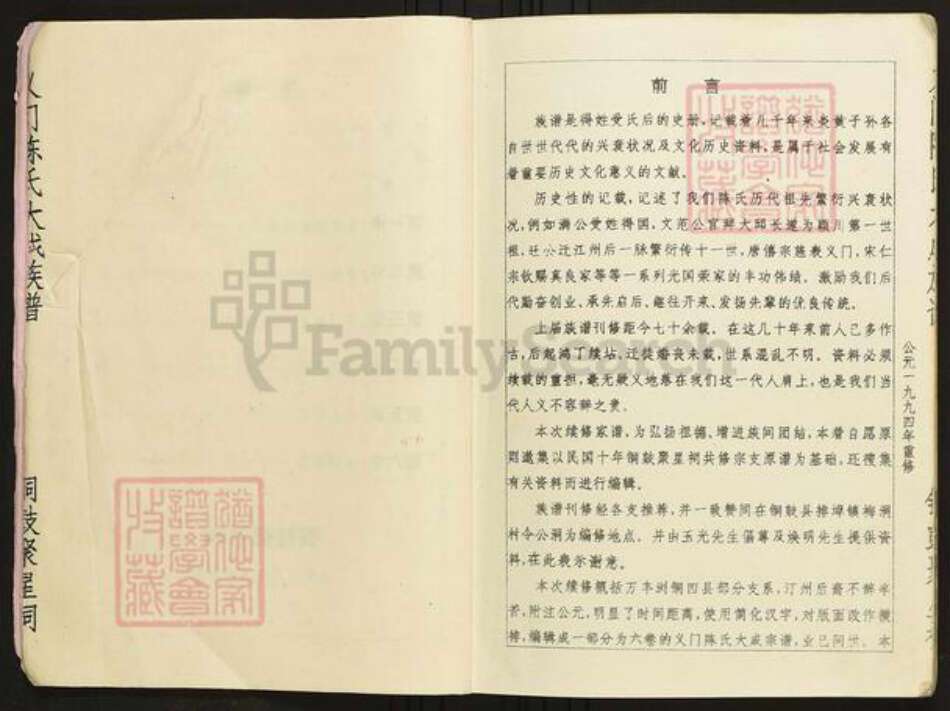 门陈氏大成族谱
铜鼓聚星祠
前言
族谱是得姓受氏后的史册,记载着几千年来炎黄子孙各
自世世代代的兴衰状况及文化历史资料,是属于社会发展有
着重要历史文化意义的文献。
历史性的记载,记述了我们陈氏历代祖先繁衍兴衰状
况,例如满公受姓得国,文范公官拜大邱长遂为颖川第一世
祖,旺公迁江州后一脉繁衍传十一世,唐僖宗旌表义门,宋仁
宗钦赐真良家等等一系列光国荣家的丰功伟绩。激励我们后
代勤奋创业、承先启后、继往开来、发扬先辈的优良传统。
上届族谱刊修距今七十余载。在这几十年来前人已多作
古,后起鸿了续坫,迁徙婚丧未载,世系混乱不明。资料必须
续载的重担,毫无疑义地落在我们这一代人肩上,也是我们当
代人义不容辞之责。
本次续修家谱,为弘扬祖德、增进族间团结,本着自愿原
则邀集以民国十年铜鼓聚星祠共修宗支原谱为基础,还搜集
有关资料而进行编辑。
族谱刊修经各支推荐,并一致赞同在铜鼓县排埠镇梅洞
村令公洞为编修地点。并由玉光先生倡尊及焕明先生提供资
料,在此表示谢意。
本次续修概括万丰浏铜四县部分支系,汀州后裔不辞辛
苦,附注公元,明显了时间距离,使用简化汉字,对版面改作横
排,编辑成一部分为六卷的义门陈氏大成宗谱,业已问世。本
公元一九九四年重修
FamilySearch